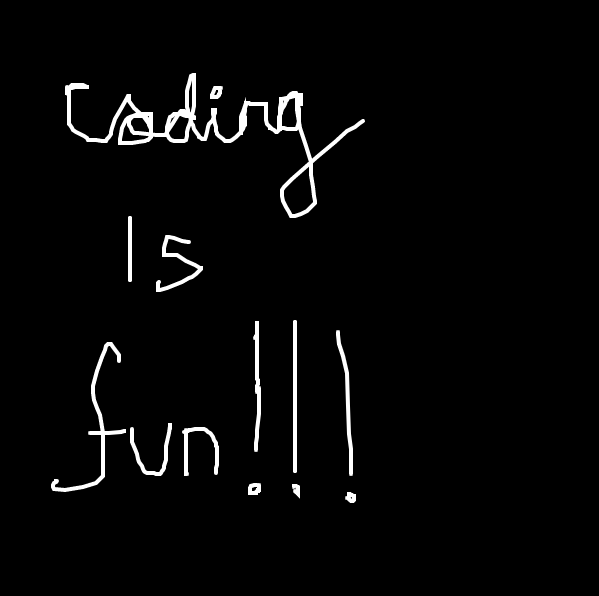 Coding
Is
fun!!!